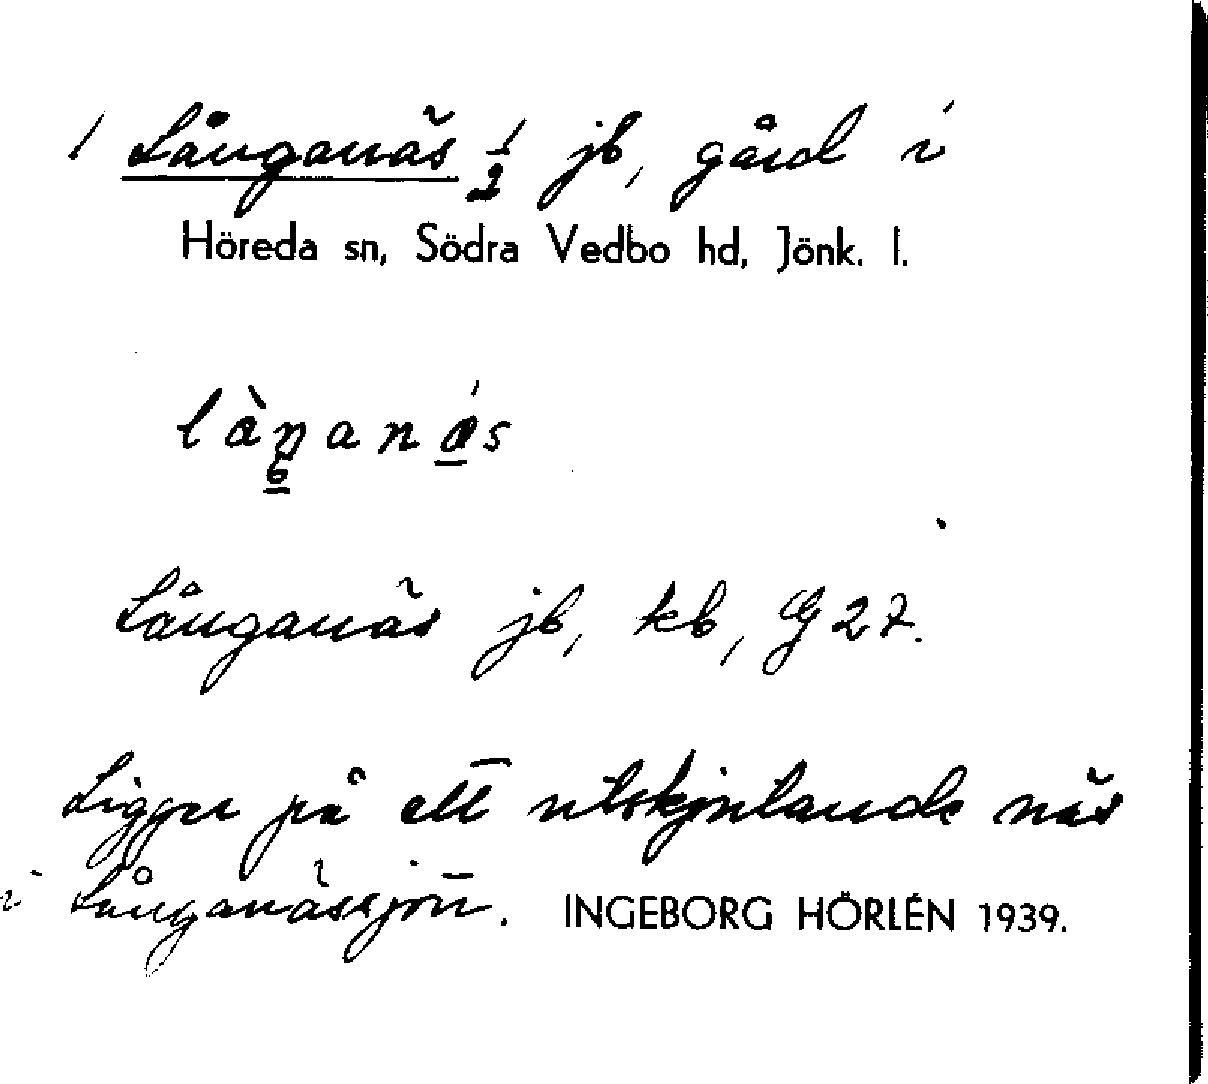 1 Långanäs ½ jb, gård i
Höreda sn, Södra Vedbo hd, Jönk. l.
Långanäs jb, kb, G 27.
Ligger på ett utskjutande näs
i Långanässjön. INGEBORG HÖRLÉN 1939.